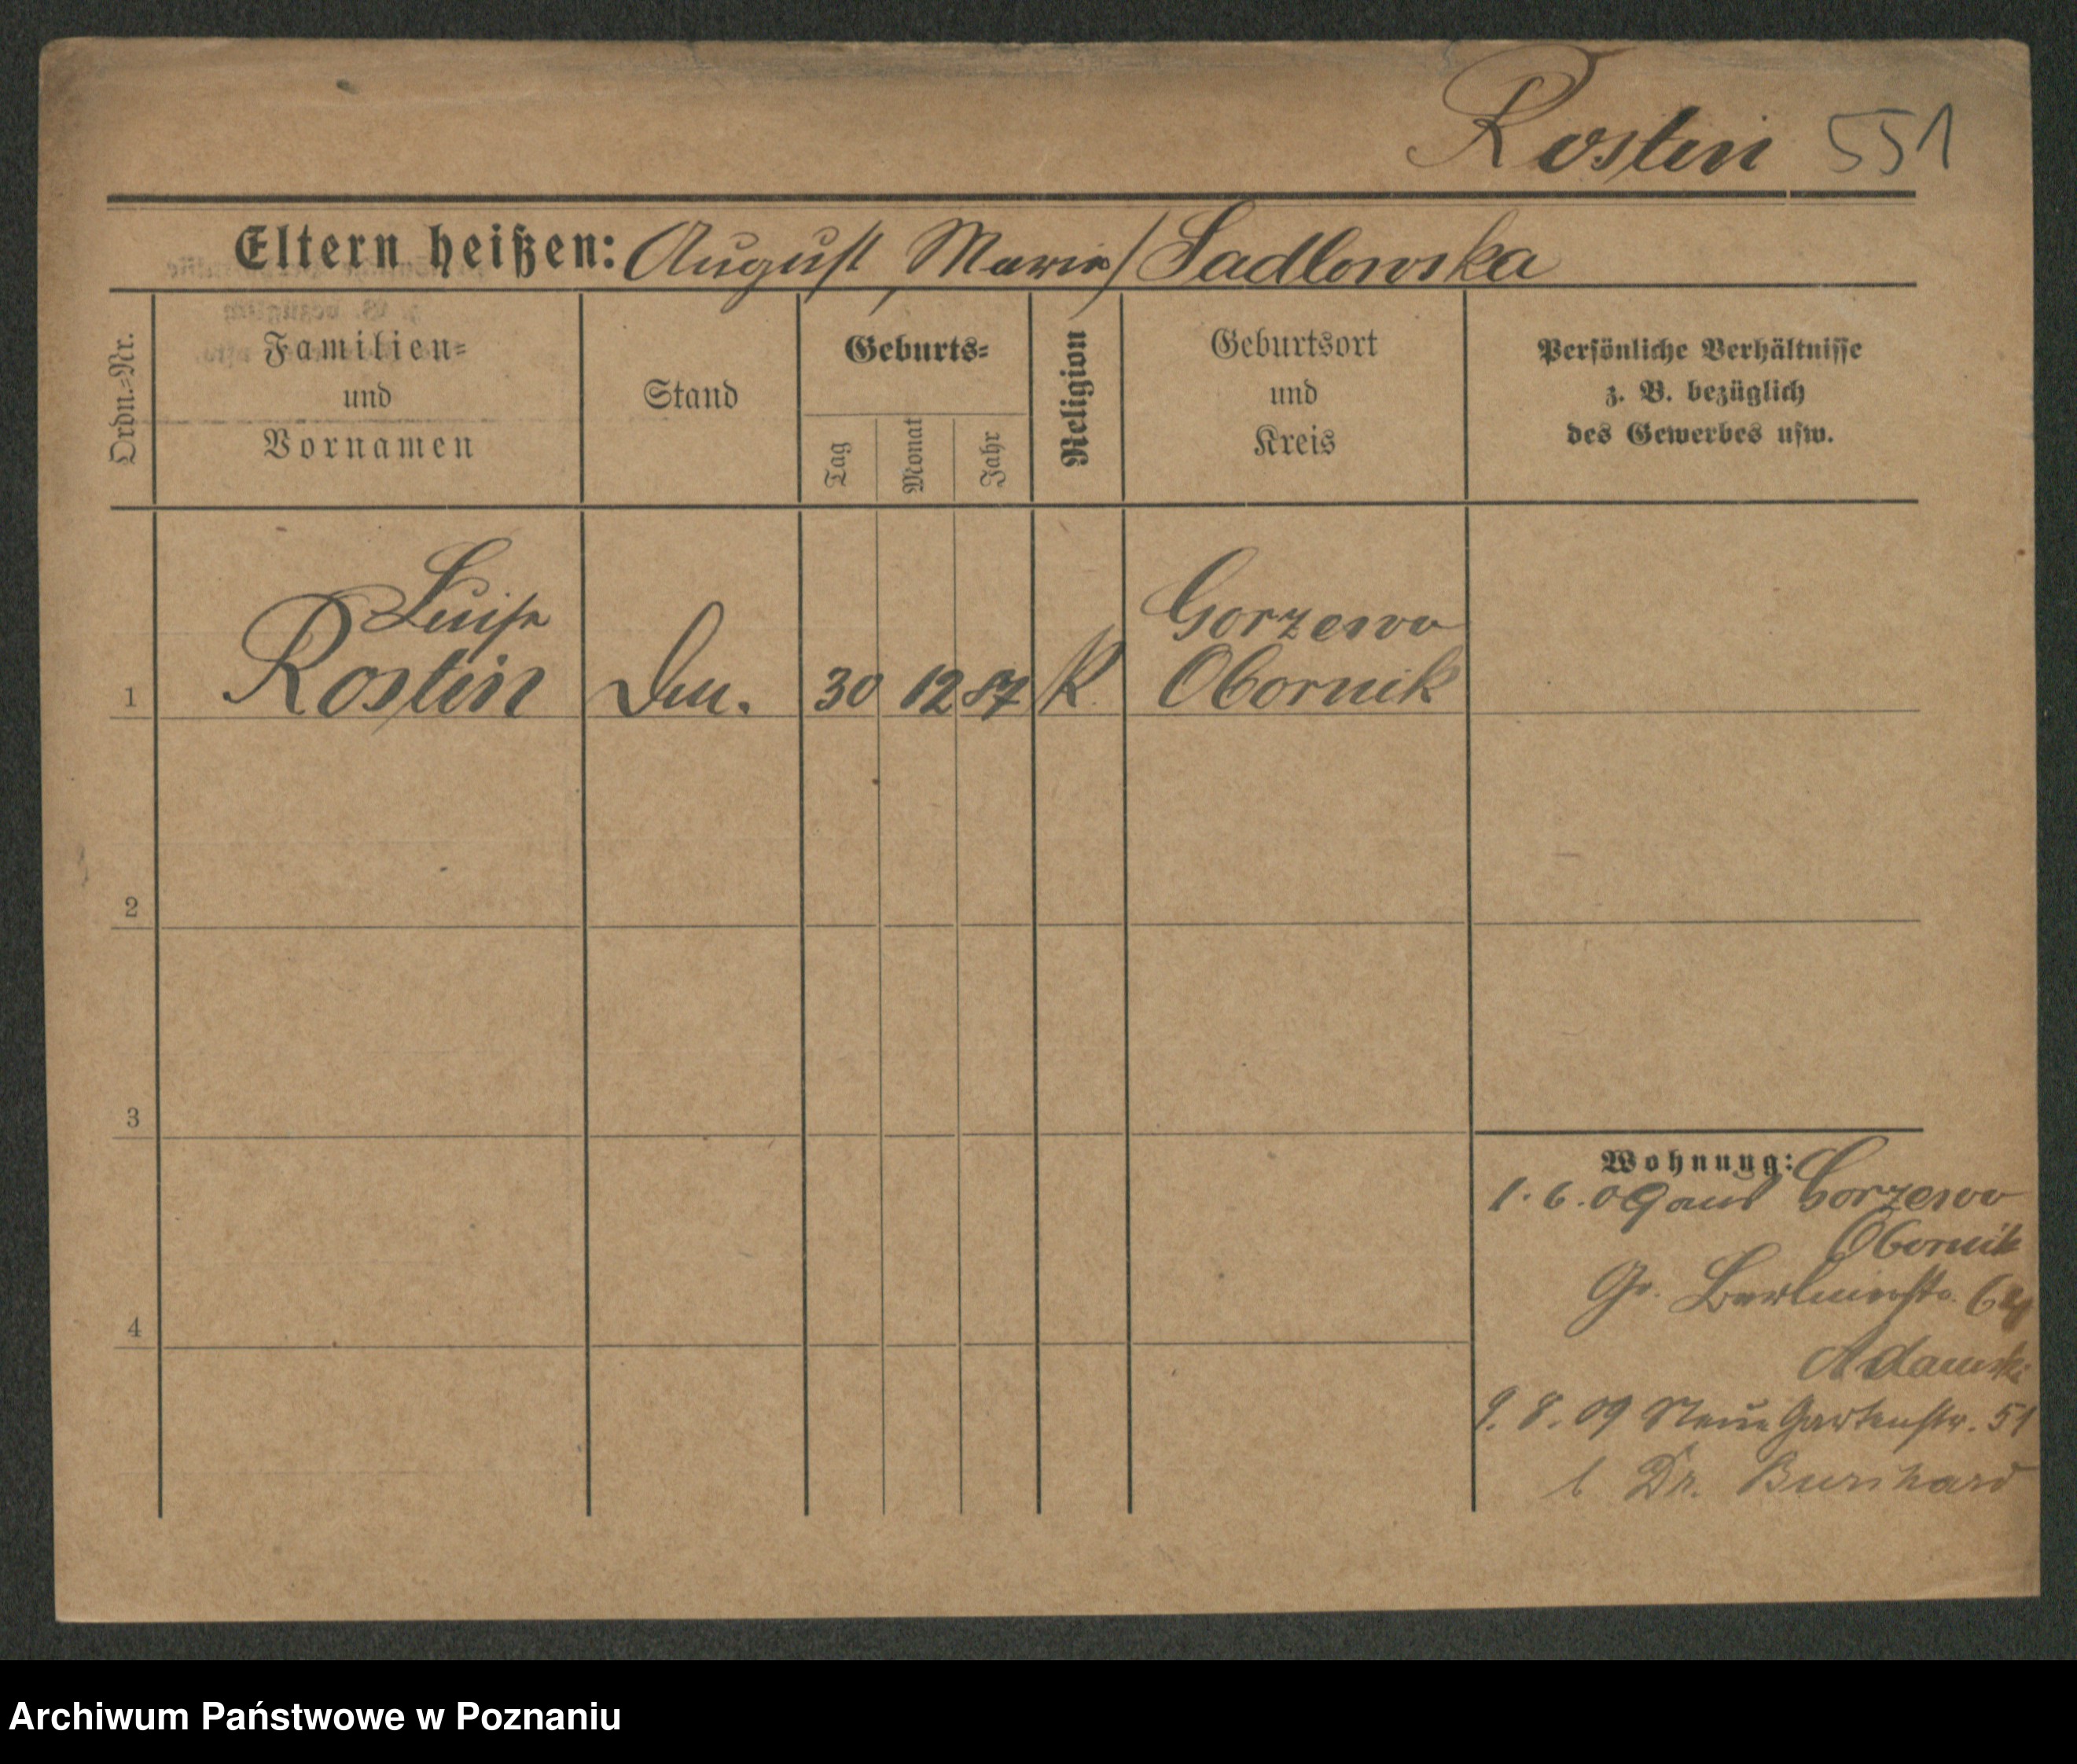 Rostin 551
Eltern heißen: August, Maria / Sadlowska
Ordn.-Nr.
Familien-
und
Vornamen
Stand
Geburts-
Tag
Monat
Jahr
Religion
Geburtsort
und
Kreis
Persönliche Verhältnisse
z. B. bezüglich
des Gewerbes usw.
Luise
Gorzewo
1 Rostin 30 12 87 K. Obornik
2
3
4
Wohnung:
1. 6. 09 aus Gorzewo
Obornik
Gr. Berlinerstr.
Adamski
9. 8. 09 Neue Gartenstr. 51
Dr.
Archiwum Państwowe w Poznaniu